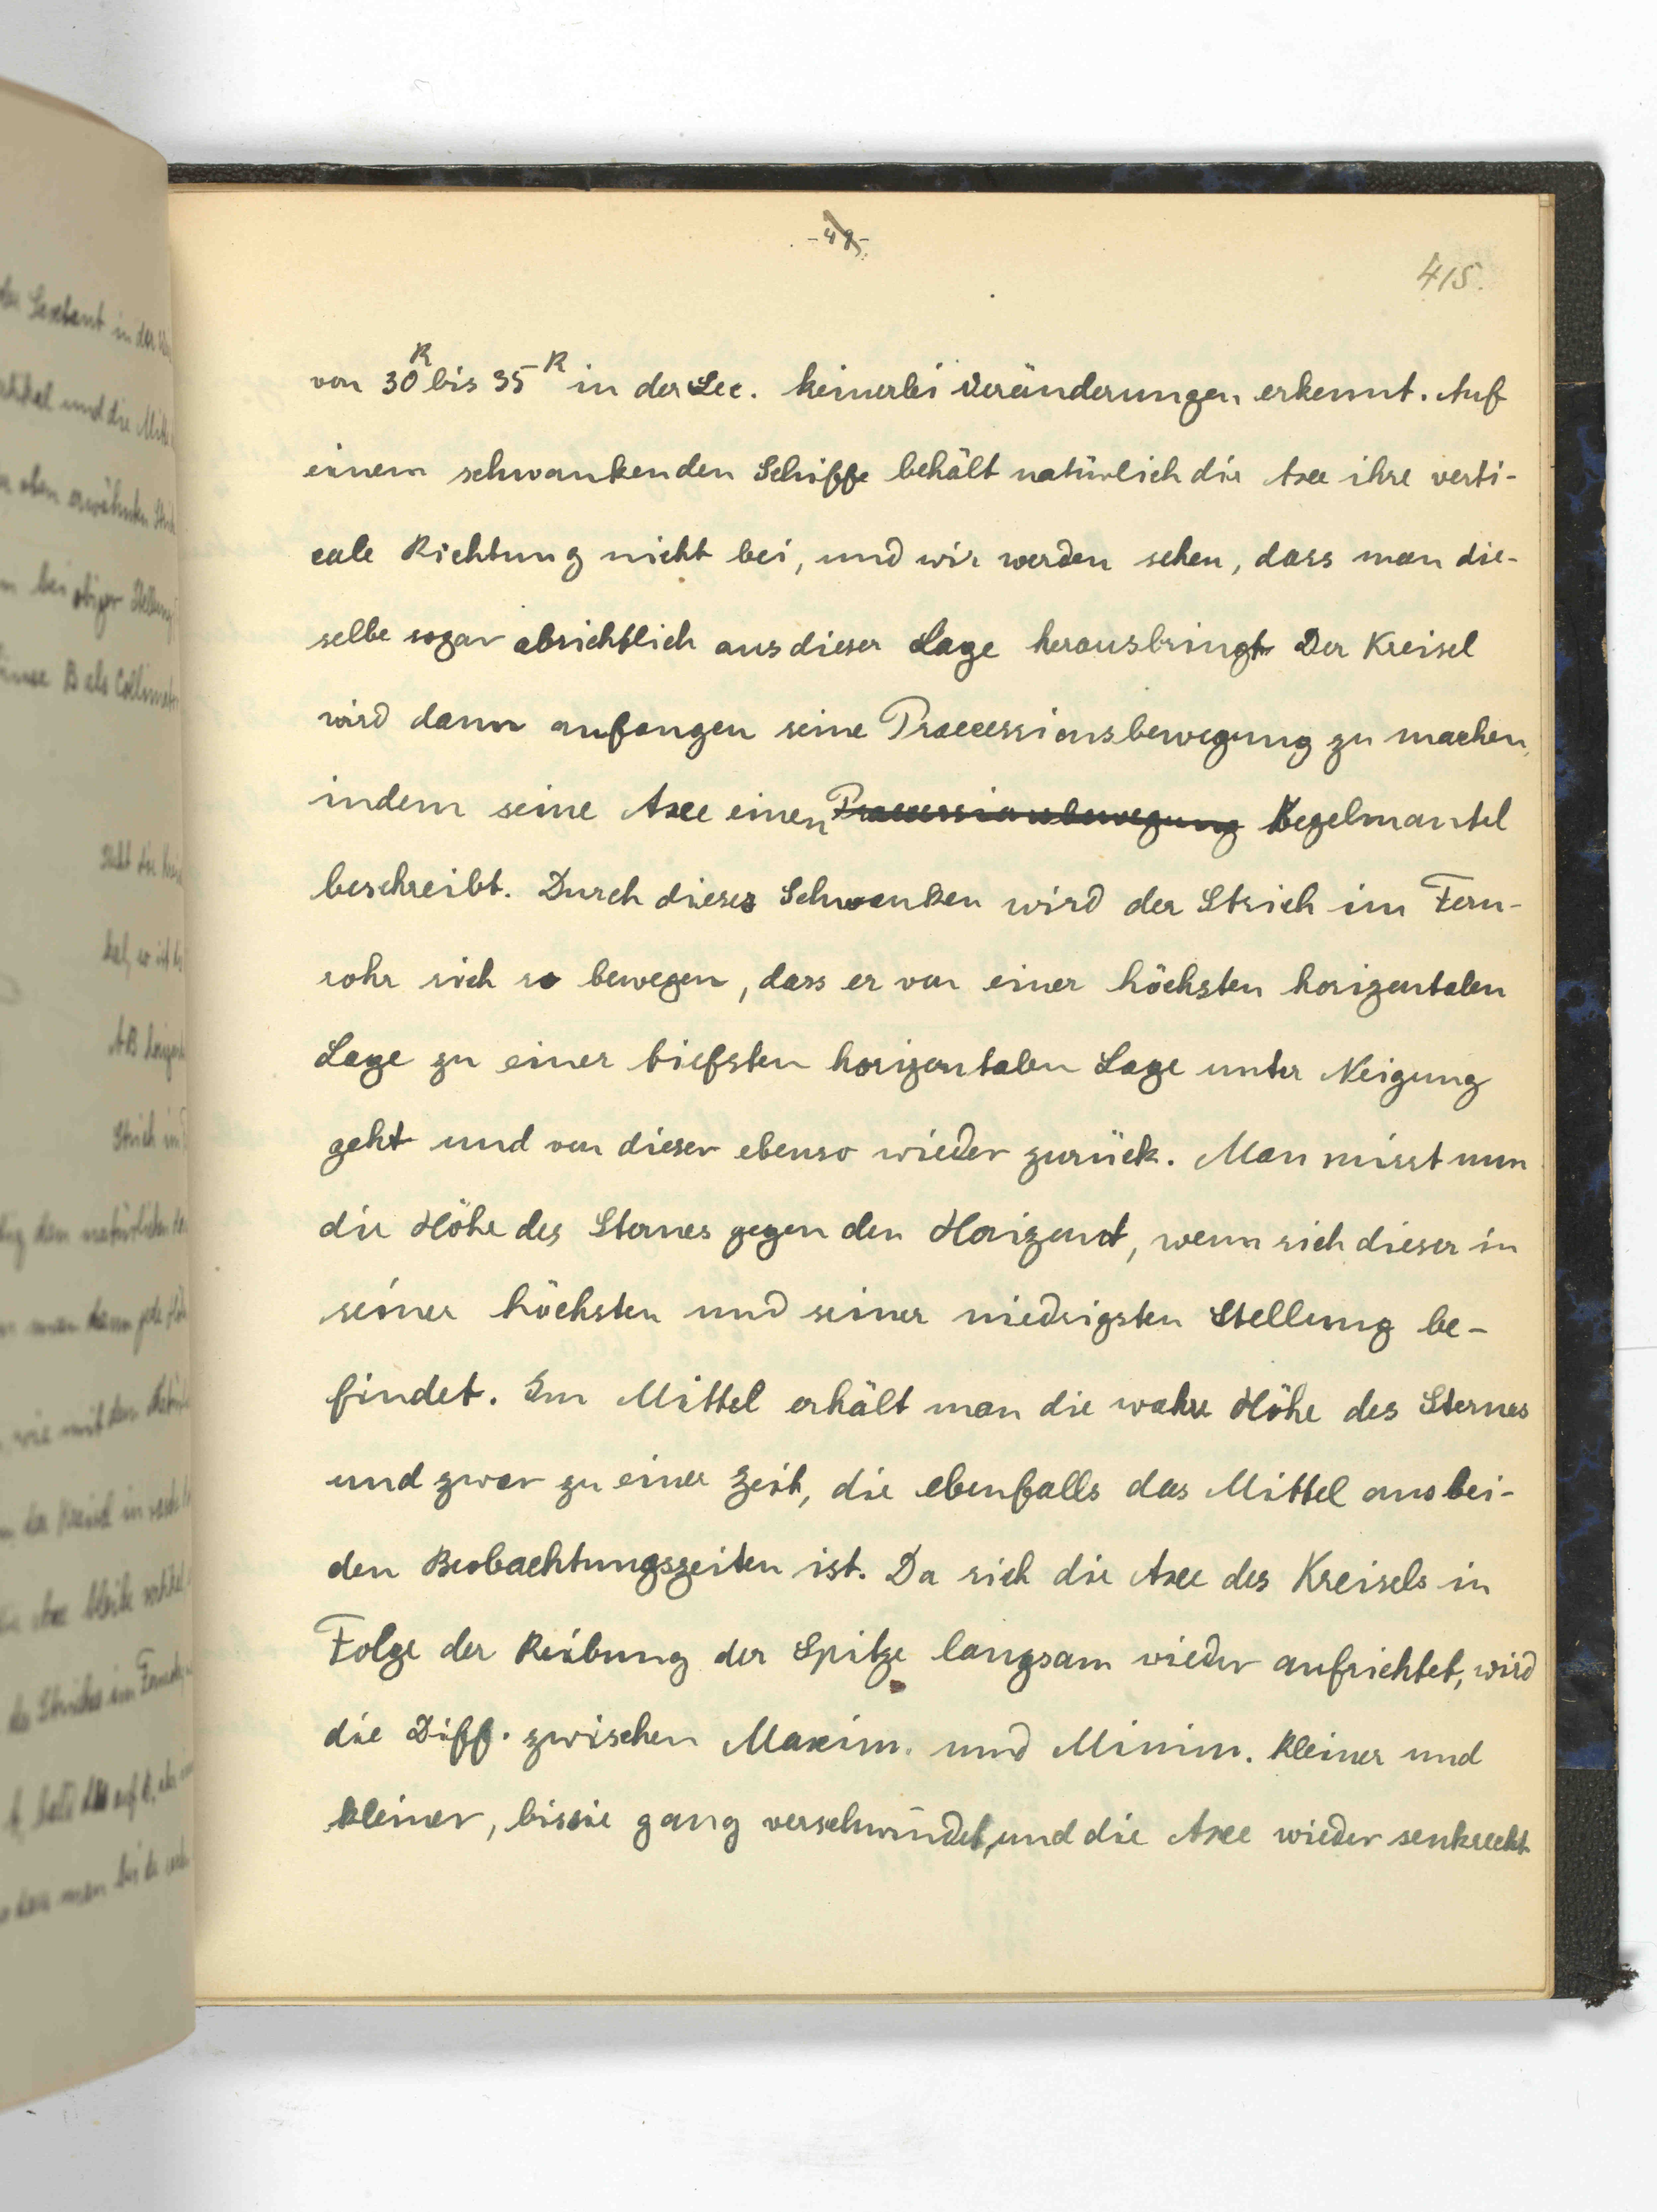 -48-
415.
von 30ᴿ bis 35ᴿ in der Sec. keinerlei Veränderungen erkennt. Auf
einem schwankenden Schiffe behält natürlich die Axe ihre verti-
cale Richtung nicht bei, und wir werden sehen, dass man die-
selbe sogar absichtlich aus dieser Lage herausbringt. Der Kreisel
wird dann anfangen seine Praecessionsbewegung zu machen,
indem seine Axe einen Praecessionsbewegung Kegelmantel
beschreibt. Durch dieses Schwanken wird der Strich im Fern-
rohr sich so bewegen, dass er von einer höchsten horizontalen
Lage zu einer tiefsten horizontalen Lage unter Neigung
geht und von dieser ebenso wieder zurück. Man misst nun
die Höhe des Sternes gegen den Horizont, wenn sich dieser in
seiner höchsten und seiner niedrigsten Stellung be-
findet. Im Mittel erhält man die wahre Höhe des Sternes
und zwar zu einer Zeit, die ebenfalls das Mittel aus bei-
den Beobachtungszeiten ist. Da sich die Axe des Kreisels in
Folge der Reibung der Spitze langsam wieder aufrichtet, wird
die Diff. zwischen Maxim. und Minim. kleiner und
kleiner, bis sie ganz verschwindet, und die Axe wieder senkrecht